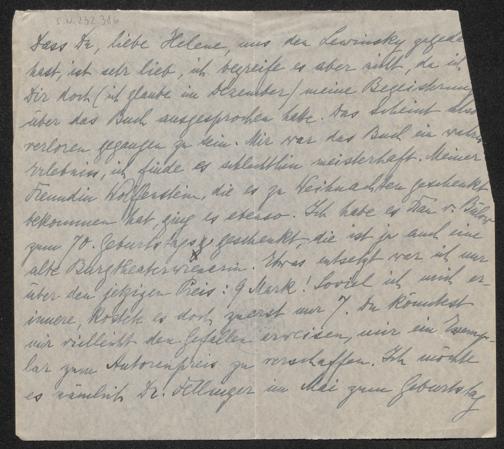 S.N. 232.316
Dass Du, liebe Helene, uns den Lewinsky
hast, ist sehr lieb, ich begreife es aber nicht, da ich
Dir doch (ich glaube im Dezember) meine Begeisterung
über das Buch ausgesprochen habe. Das scheint also
verloren gegangen zu sein. Mir war das Buch ein wahres
Erlebnis, ich finde es schlechthin meisterhaft. Meiner
Freundin Wolffenstein, die es zu Weihnachten geschenkt
bekommen hat ging es ebenso. Ich habe es Frau v.
zum 70. Geburtstage geschenkt, die ist ja auch eine
alte Burgtheaterwienerin. Etwas entsetzt war ich nur
über den jetzigen Preis: 9 Mark! Soviel ich mich er
innere, kostete es doch zuerst nur 7. Du könntest
mir vielleicht den Gefallen erweisen, mir ein Exemp-
lar zum Autorenpreis zu verschaffen. Ich möchte
es nämlich Dr. Fellinger im Mai zum Geburtstag